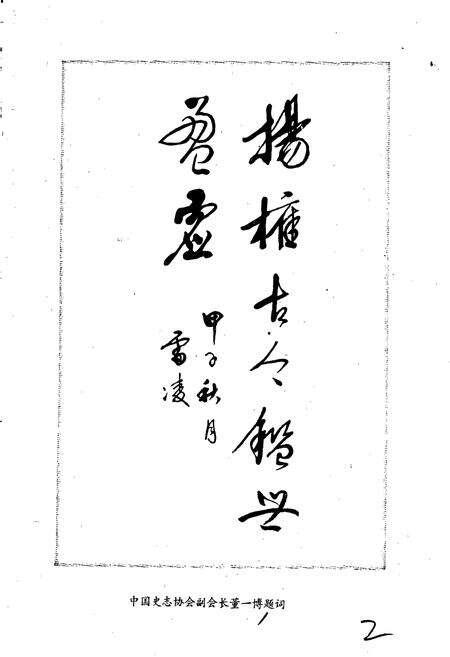 揚榷古今鑑世
盈虚
甲子秋月
雷凌
中国史志协会副会长董一博题词
2